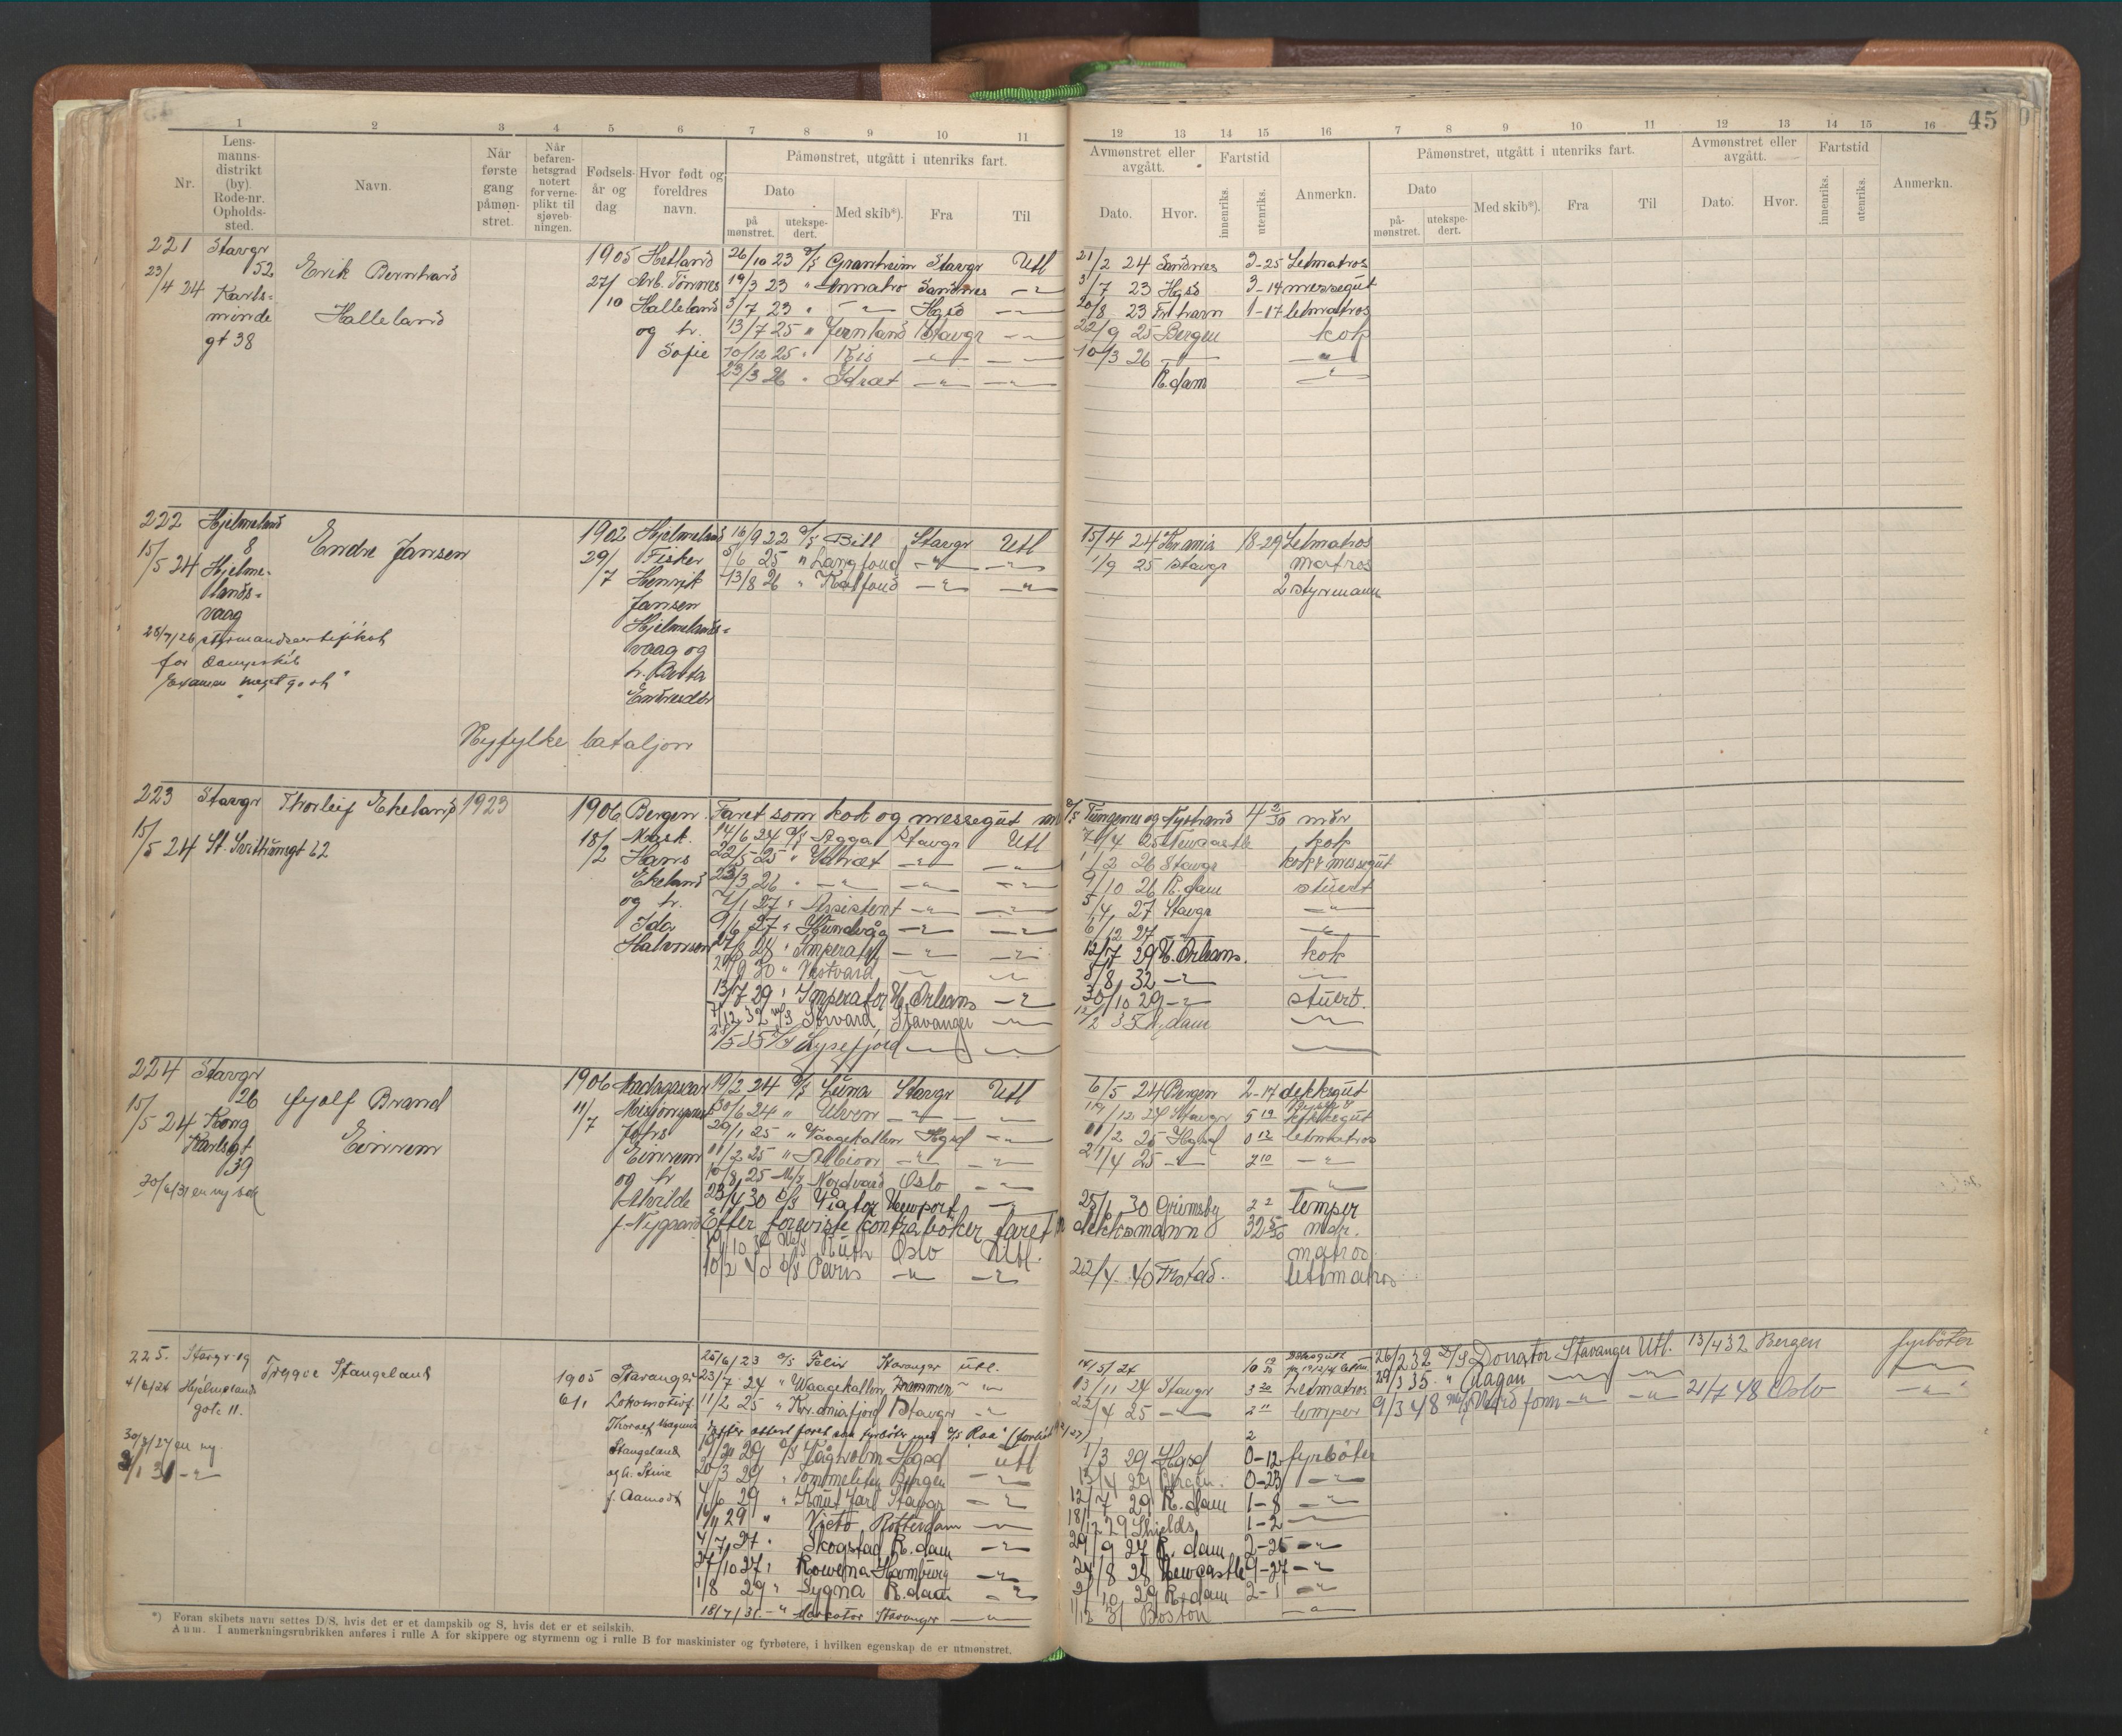 45
1 2 3 4 5 6 7 8 9 10 11 12 13 14 15 16 7 8 9 10 11 12 13 14 15 16
Nr.
Lens-
manns-
distrikt
(by).
Rode-nr.
Opholds-
sted.
Navn.
Når
første
gang
påmøn-
stret.
Når
befaren-
hetsgrad
notert
for verne-
plikt til
sjøveb-
ningen.
Fødsels-
år og
dag
Hvor født og
foreldres
navn.
Påmønstret, utgått i utenriks fart.
Dato
på
mønstret.
utekspe-
dert.
Med skib*).
Fra
Til
Avmønstret eller
avgått.
Dato.
Hvor.
Fartstid
innenriks.
utenriks.
Anmerkn.
Påmønstret, utgått i utenriks fart.
Dato
på-
mønstret.
utekspe-
dert.
Med skib*).
Fra
Til
Avmønstret eller
avgått.
Dato.
Hvor.
Fartstid
innenriks.
utenriks.
Anmerkn.
221 Stavgr
52
23/4 24 Karls-
minde
gt 38
Erik Bernhard
Halleland
1905
27/10
Hetland
Arb. Tönnes
Halleland
og h.
Sofie
26/10 23 D/S Granheim Stavgr Utl 21/2 24 Sandnes 3-25 Letmatros
19/3 23 " Annatro Sandnes -"- 3/7 23 Hgsd 3-14 messegut
3/7 23 " -"- Hgsd -"- 20/8 23 Fr.havn 1-17 letmatros
13/7 25 " Jernland Stavgr -"- 22/9 25 Bergen kok
10/12 25 " Ris -"- -"- 10/3 26 -"- -"-
23/3 26 " Idræt -"- -"- R.dam -"-
222 Hjelmeland
8
15/5 24 Hjelme-
lands-
vaag
Endre Jansen
28/7/26 styrmandscertifikat
for dampskib
Examen meget godt
1902
29/7
Hjelmeland
Fisker
Henrik
Jansen
Hjelmelands-
vaag og
h. Marta
Endresdtr
16/9 22 D/S Bill Stavgr Utl 15/4 24 Kr.ania 18-29 Letmatros
5/6 25 " Langfond -"- -"- 1/9 25 Stavgr matros
13/8 26 " Kalfond -"- -"- 2 styrmann
Ryfylke bataljon
223 Stavgr Thorleif Ekeland 1923
15/5 24 St. Svithunsgt 62
1906
18/2
Bergen
Mask.
Hans
Ekeland
og h.
Ida
Halvorsen
Faret som kok og messegut m D/S Tungenes og Nystrand 4 2/30 mdr
14/6 24 D/S Agga Stavgr Utl 7/4 25 Newcastle kok
22/5-25 " Idræt -"- -"- 1/2 26 Stavgr kok & messegut
23/3 26 " -"- -"- -"- 9/10 26 R.dam stuert
7/1 27 " Assistent -"- -"- 5/4 27 Stavgr -"-
9/6 27 " Hundvåg -"- -"- 6/12 27 -"- -"-
27/8 28 " Imperator -"- -"- 12/7 29 N. Orleans. kok
29/9 30 " Vestvard -"- -"- 8/8 32 -"- -"-
13/7 29 " Imperator N. Orleans -"- 30/10 29 -"- stuert.
7/12 32 M/S Sörvard, Stavanger -"- 12/2 35 R.dam -"-
28/5 35 D/S Lysefjord -"- -"- -"-
224 Stavgr
26
15/5 24 Kong
Karlsgt
39
Eyolf Brand
Einrem
30/6/31 en ny bok
1906
11/7
Madagascar
Misionsprest
Johs
Einrem
og h
Alvilde
f. Nygaard
19/2 24 D/S Luna Stavgr Utl 6/5 24 Bergen 2-17 dekksgut
30/6 24 " Ulven -"- -"- 19/12 24 Stavgr 5 19 dekksgut
29/1 25 " Vaagekallen Hgsd -"- 11/2 25 Hgsd 0 12 letmatros
11/2 25 " Albion -"- -"- 21/4 25 -"- 2 10 -"-
10/8 25 M/S Nordvard Oslo -"- -"-
23/4 30 D/S Viator Newport -"- 25/6 30 Grimsby 2 2 lemper
Efter foreviste kontrabøker faret m dekksmann 32 5/30 mdr.
10 M/S Ruth Oslo Utl. matros
10/2 40 D/S Paris -"- -"- 22/4 40 Frstad. letmatros
225. Stavgr. 19
4/6/24 Hjelmeland
gate 11.
Trygve Stangeland
30/3/27 en ny
2/1 31 -"-
1905
6/1
Stavanger
Lokomotivf.
Thorolf Magnus
Stangeland
og h. Stine
f. Aamodt
25/6/23 D/S Felix Stavanger utl. 14/5/24
23/7 24 " Waagekallen Drammen -"- 13/11 24 Stavgr 3 20 Letmatros
11/2 25 " Kr.aniafjord Stavgr -"- 22/4 25 -"- 2 11 lemper
Efter attest faret som fyrböter med D/S "Raa"
19/2 29 D/S Vågholm Hgsd utl 1/3 29 Hgsd 0-12 fyrböter
20/3 29 " Tommeliten Bergen -"- 13/4 29 Bergen. 0-23 -"-
4/6 29 " Knut Jarl Stavgr -"- 12/7 29 R.dam 1-8 -"-
16/11 29 " Victo Rotterdam -"- 18/12 29 Shields 1-2 -"-
4/7 27 " Skogstad R.dam -"- 29/9 27 R.dam 2-25 -"-
27/10 27 " Rowena Hamburg -"- 24/8 28 Newcastle 9-27 -"-
1/8 29 " Sygna R.dam -"- 2/10 29 R.dam 2-1 -"-
18/7/31 -"- Mercator Stavanger -"- 1/12 31 Boston -"-
26/2 32 D/S Donator Stavanger Utl. 13/4 32 Bergen fyrböter
29/3 35 " Aagan -"- -"- -"-
9/3 48 M/S Nordfonn -"- -"- 21/7 48 Oslo -"-
*) Foran skibets navn settes D/S, hvis det er et dampskib og S, hvis det er et seilskib.
Anm. I anmerkningsrubrikken anføres i rulle A for skippere og styrmenn og i rulle B for maskinister og fyrbøtere, i hvilken egenskap de er utmønstret.